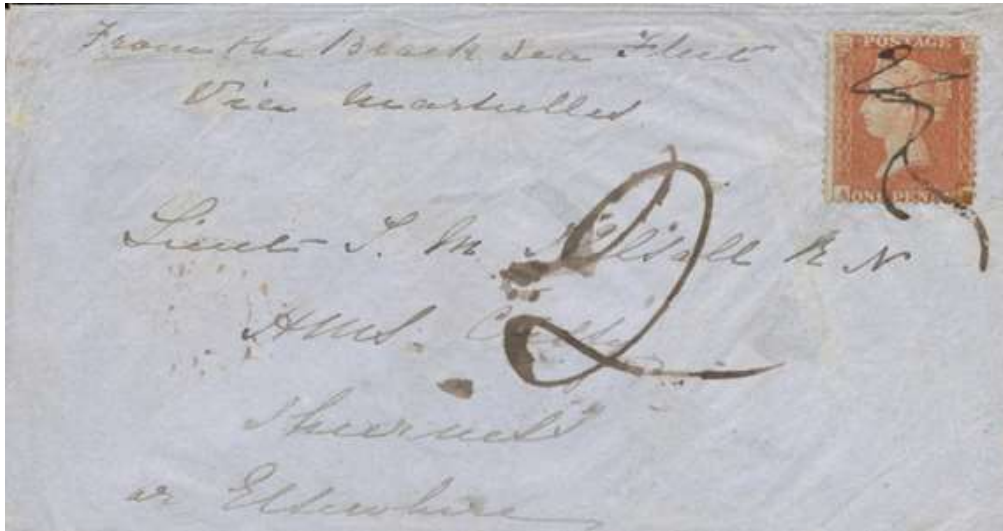 From the Black Sea Fleet
Via Marseilles
POSTAGE
ONE PENNY
Lieut S. M. R N
2
HMS.
Sheerness
or Elsewhere